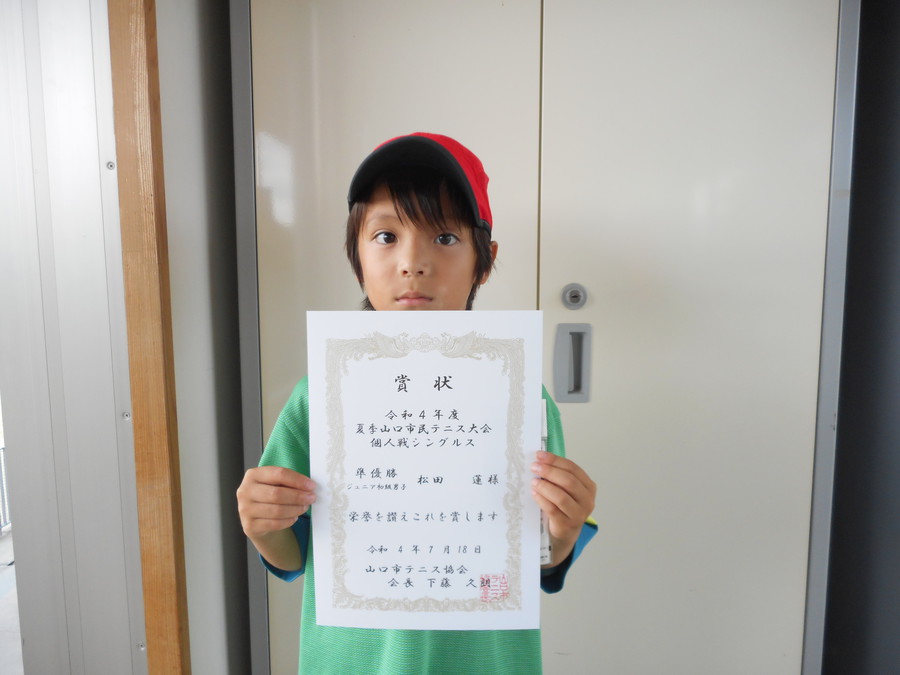 賞状
令和4年度
夏季山口市民テニス大会
個人戦シングルス
準優勝 松田 蓮様
ジュニア初級男子
栄誉を讃えこれを賞します
令和 4 年 7 月 18 日
山口市テニス協会
会長 下藤 久